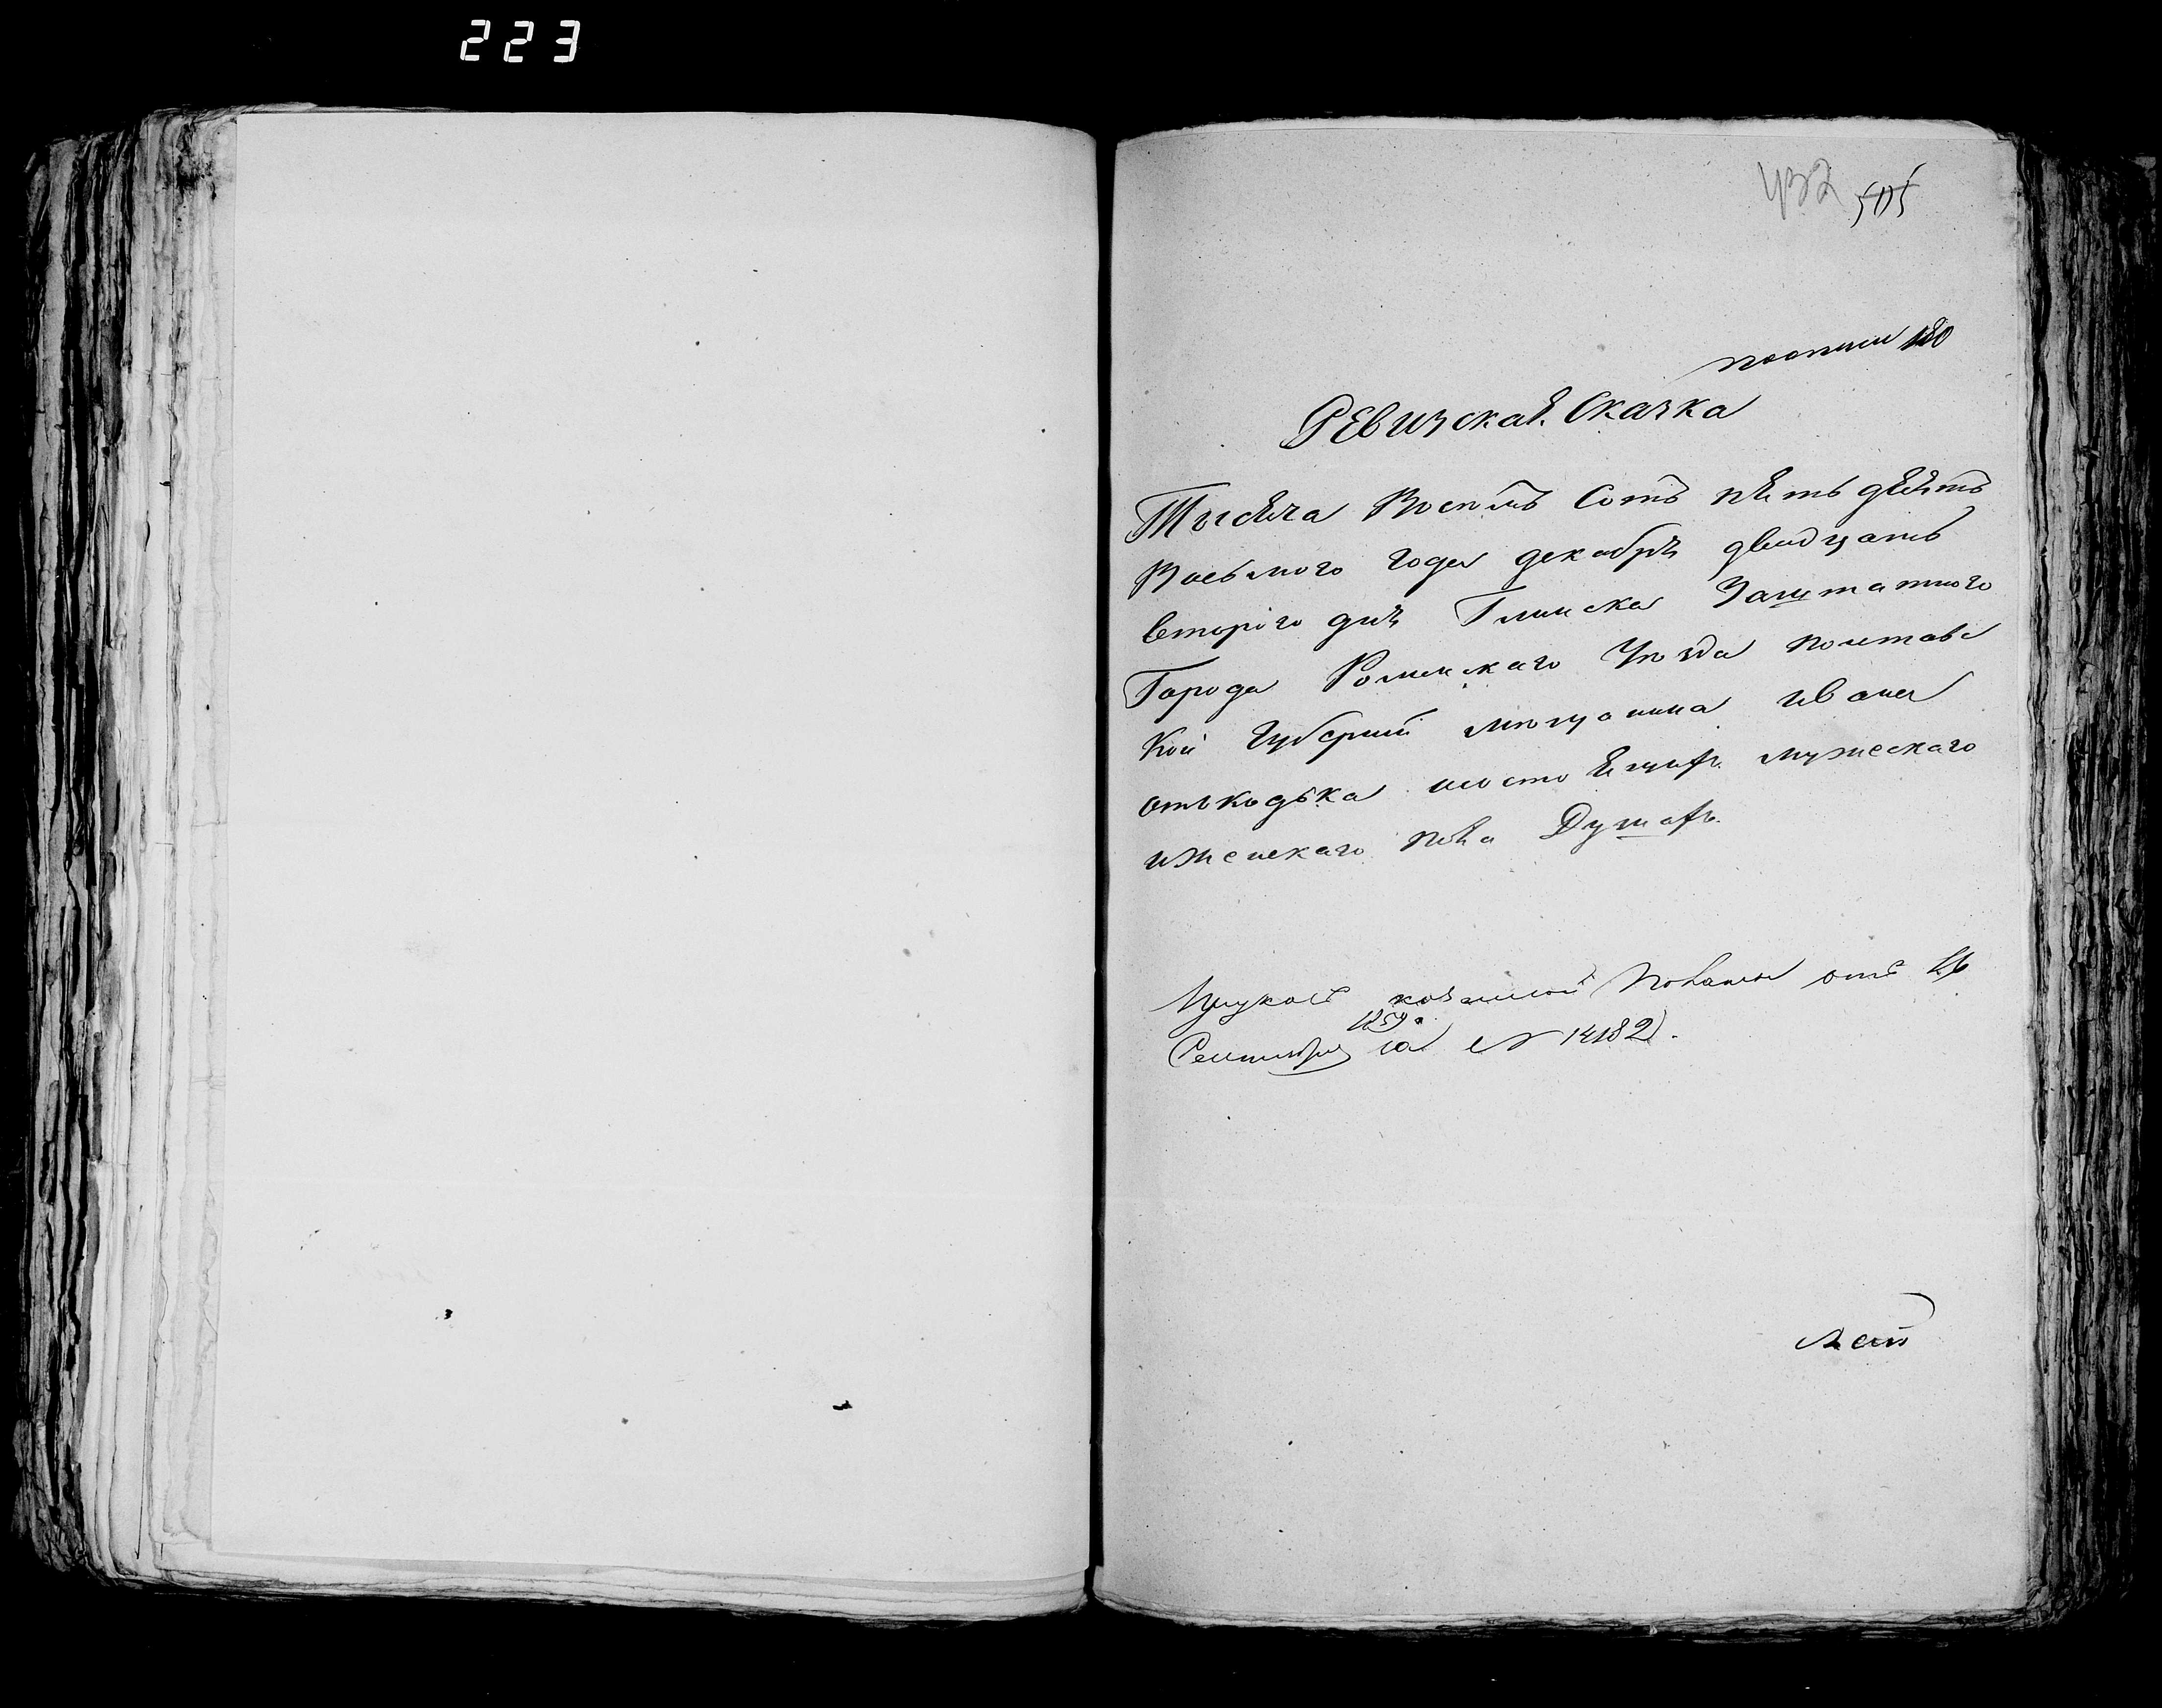 223
432 505
по описи 180
Ревизская Сказка
Тысяча Восемь Сотъ пять десятъ
Восьмого года декабря двадцать
второго дня Глинска Заштатного
Города Роменскаго Уезда полтавс
кой Губернии мещанина ивана
отъкодька состоящихъ мужескаго
иженскаго пола Душахъ.
казенной Палаты отъ 16
Сентября 1859 за № 14182.